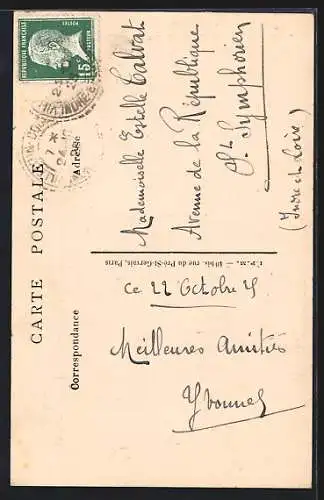 CARTE POSTALE
Correspondance
Adresse
RÉPUBLIQUE FRANÇAISE
POSTES
15c
ce 22 Octobre 25
Meilleures Amitiés
Yvonne
I.P.M. — 40 bis, rue du Pré-St-Gervais, Paris
Mademoiselle Estelle Calvat
Avenue de la République
St. Symphorien
(Indre et Loire)